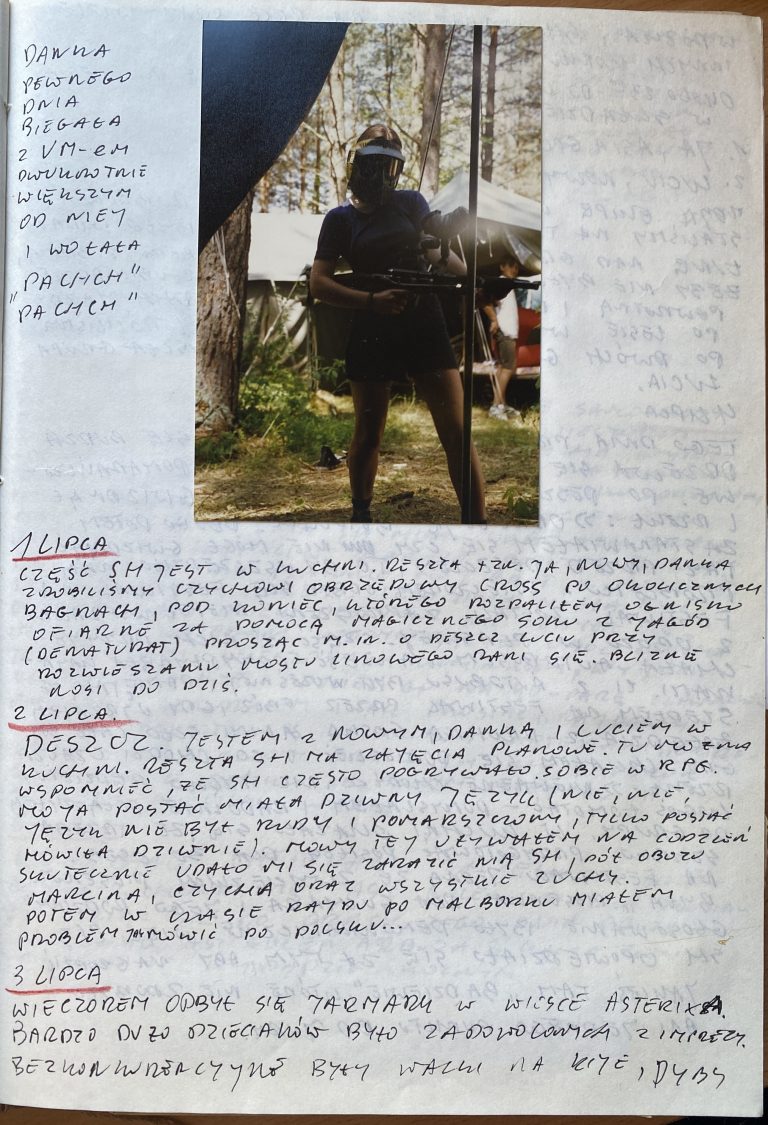 DANKA
PEWNEGO
DNIA
BIEGAŁA
Z VM-em
DWUKROTNIE
WIĘKSZYM
OD NIEJ
I WOŁAŁA
"PACHCH"
"PACHCH"
1 LIPCA
CZĘŚĆ SH JEST W KUCHNI. RESZTA TZN. JA, NOWY, DANKA
ZROBILIŚMY CZYCHOWI OBRZĘDOWY CROSS PO OKOLICZNYCH
BAGNACH, POD KONIEC, KTÓREGO ROZPALIŁEM OGNISKO
OFIARNE ZA POMOCĄ MAGICZNEGO SOKU Z JAGÓD
(DENATURAT) PROSZĄC M.IN. O DESZCZ LUCIU PRZY
ROZWIESZANIU MOSTU LINOWEGO RANI SIĘ. BLIZNĘ
NOSI DO DZIŚ.
2 LIPCA.
DESZCZ. JESTEM Z NOWYM, DANKĄ I LUCIEM W
KUCHNI. RESZTA SH MA ZAJĘCIA PLANOWE. TU MOŻNA
WSPOMNIEĆ, ŻE SH CZĘSTO POGRYWAŁO SOBIE W RPG.
MOJA POSTAĆ MIAŁA DZIWNY JĘZYK (NIE, NIE,
JĘZYK NIE BYŁ RUDY I POMARSZCZONY, TYLKO POSTAĆ
MÓWIŁA DZIWNIE). MOWY TEJ UŻYWAŁEM NA CODZIEŃ
SKUTECZNIE UDAŁO MI SIĘ ZARAZIĆ NIĄ SH, PÓŁ OBOZU
MARCINA, CZYCHA ORAZ WSZYSTKIE ZUCHY.
POTEM W CZASIE RAJDU PO MALBORKU MIAŁEM
PROBLEM MÓWIĆ PO POLSKU...
3 LIPCA
WIECZOREM ODBYŁ SIĘ JARMARK W WIOSCE ASTERIXA.
BARDZO DUŻO DZIECIAKÓW BYŁO ZADOWOLONYCH Z IMPREZY.
BEZKONKURENCYJNE BYŁY WALKI NA KIJE, DYBY